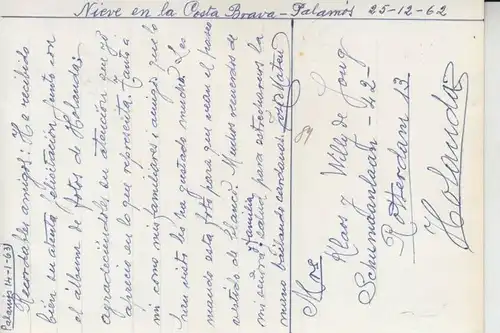 Nieve en la Costa Brava - Palamós 25-12-62
Palamós 14-1-63
Recordables amigos: He recibido
bien su atenta felicitación junto con
el álbum de fotos de Holanda:
agradeciéndoles su atención que yo
aprecio en lo que representa. Tanto a
mi como mis familiares i amigos que lo
han visto les ha gustado mucho. Les
mando esta foto para que vean el paseo
vestido de blanco. Muchos recuerdos de
mi señora familia, salud para estrecharnos la
mano bailando sardanas.
Mos
Klaas y Willy de Jong
Schumannlaan - 42 -
Rotterdam 13
Holanda